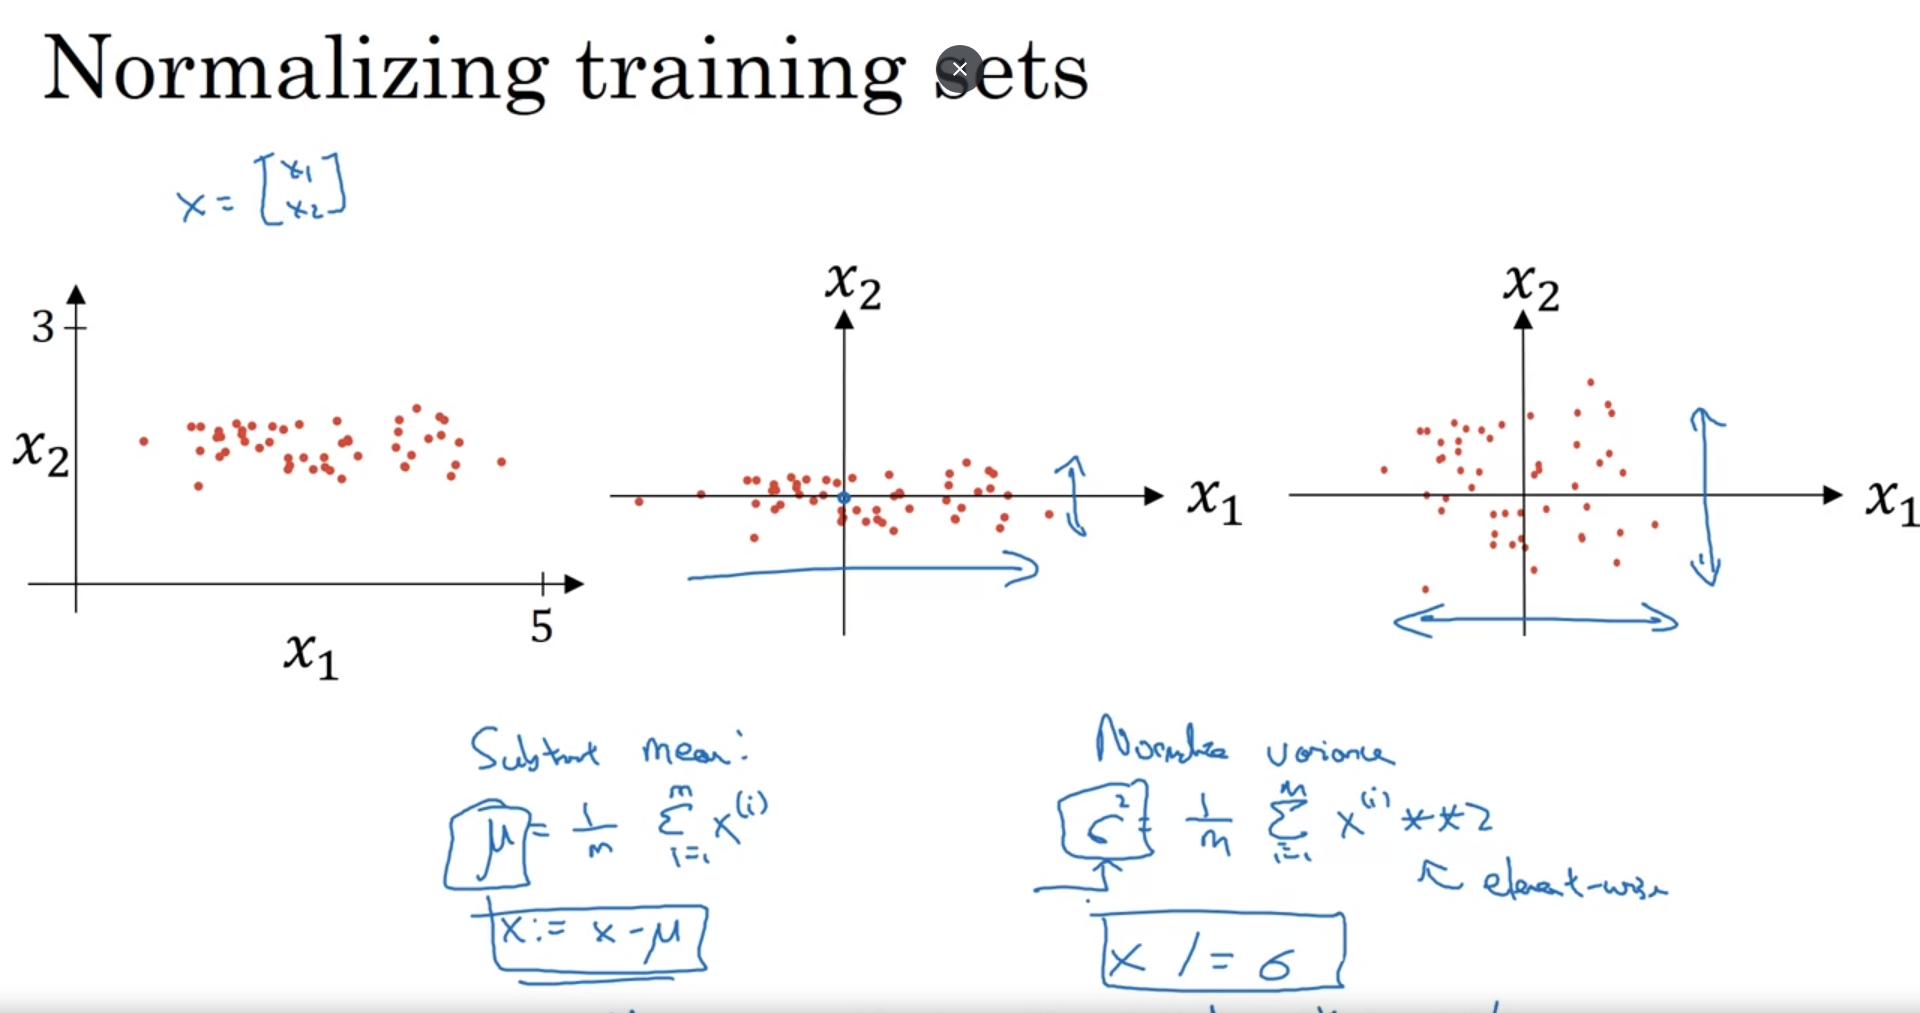 Normalizing training sets
x = [x1
x2]
3
x2
5
x1
x2
x1
x2
x1
Subtract mean:
μ = 1/m Σ i=1 m x(i)
x := x - μ
Normalize variance
σ2 = 1/m Σ i=1 m x(i) **2
element-wise
x /= σ